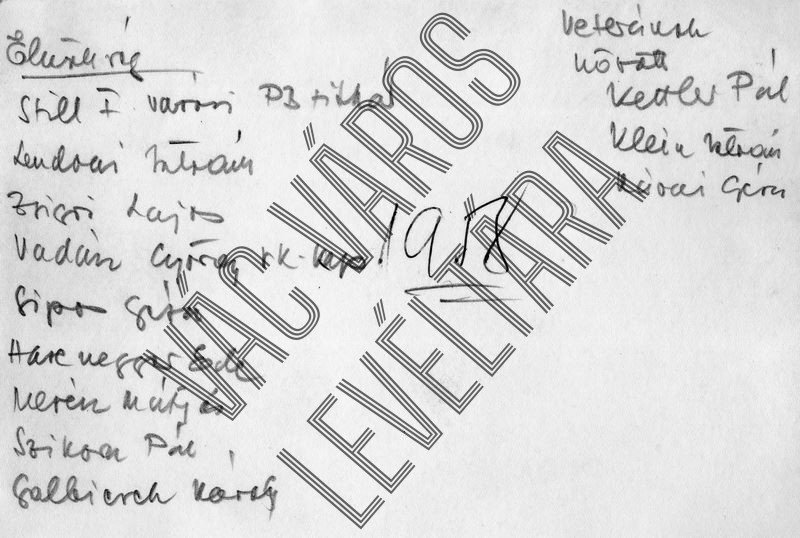 Elnökség
Still I városi PB titkár
Lendvai István
Zsigri Lajos
Vadász György
Sipos Géza
Harcnegger Ede
Merész Mátyás
Szikora Pál
Galbicsek Károly
1958
Veteránok
között
Kettler Pál
Klein István
Géza
VÁC VÁROS
LEVÉLTÁRA